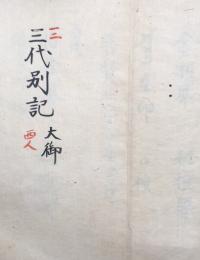 三
三代別記 大御
四人